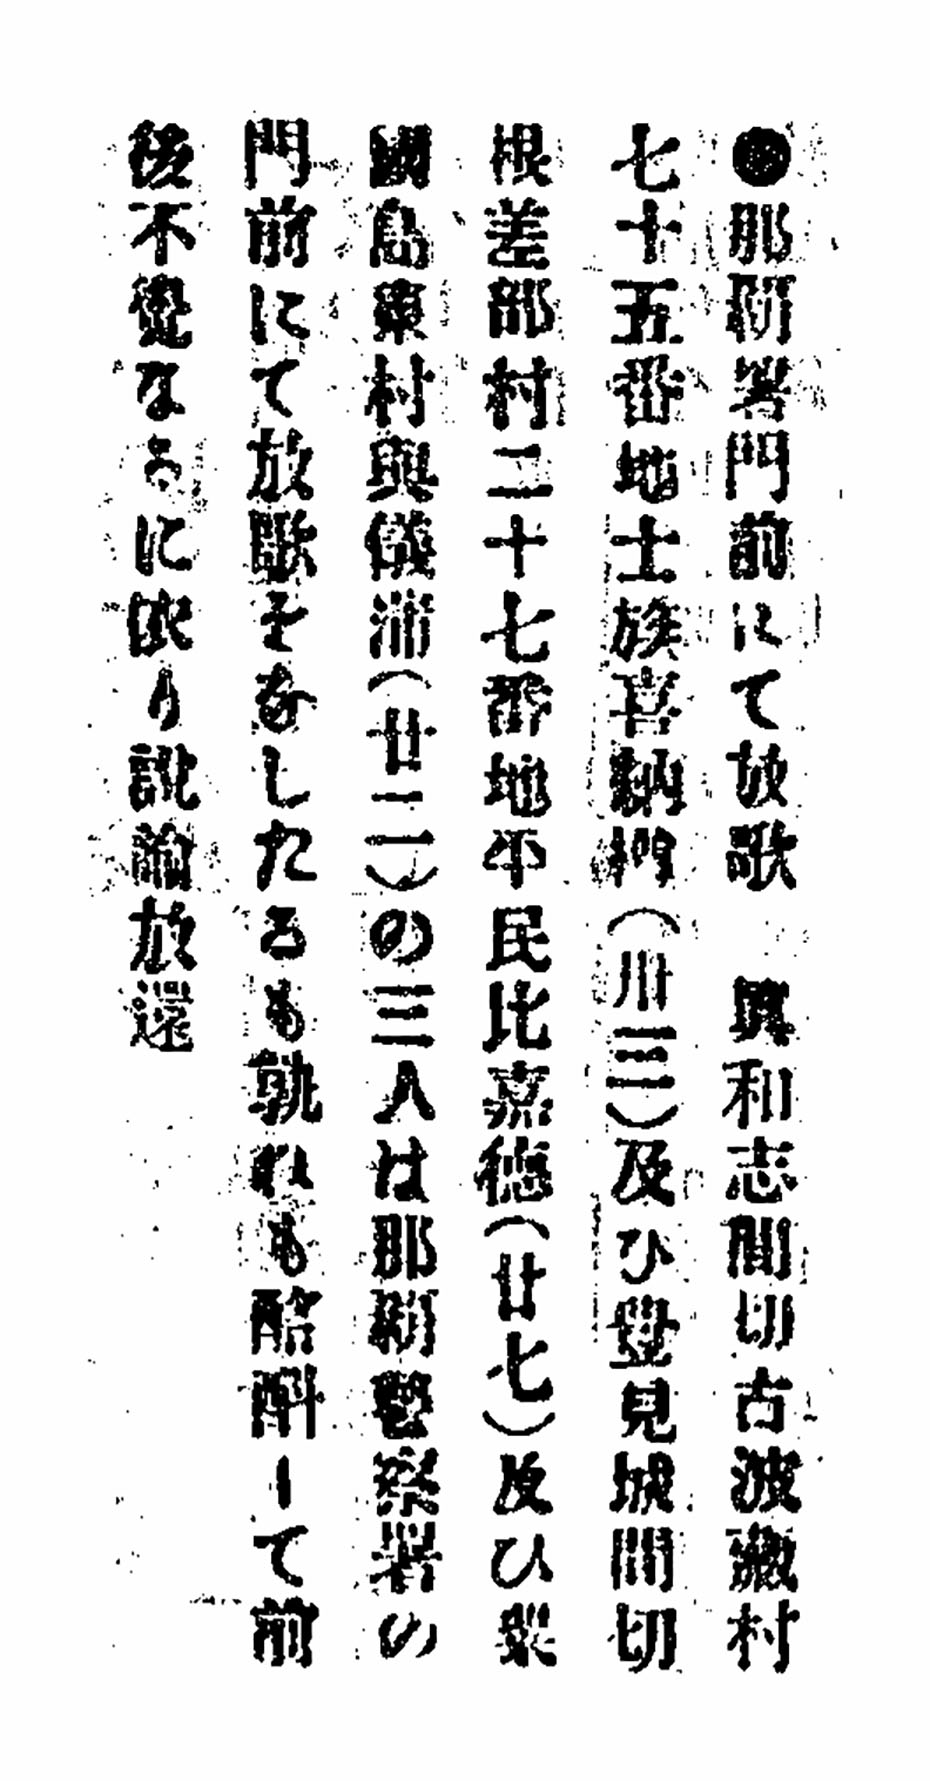 ●那覇署門前にて放歌　眞和志間切古波藏村
七十五番地士族喜納　（卅三）及ひ豊見城間切
根差部村二十七番地平民比嘉徳（廿七）及ひ粟
國島東村與儀浦（廿二）の三人は那覇警察署の
門前にて放歌をなしたるも孰れも酩酊して前
後不覺なるに依り説諭放還